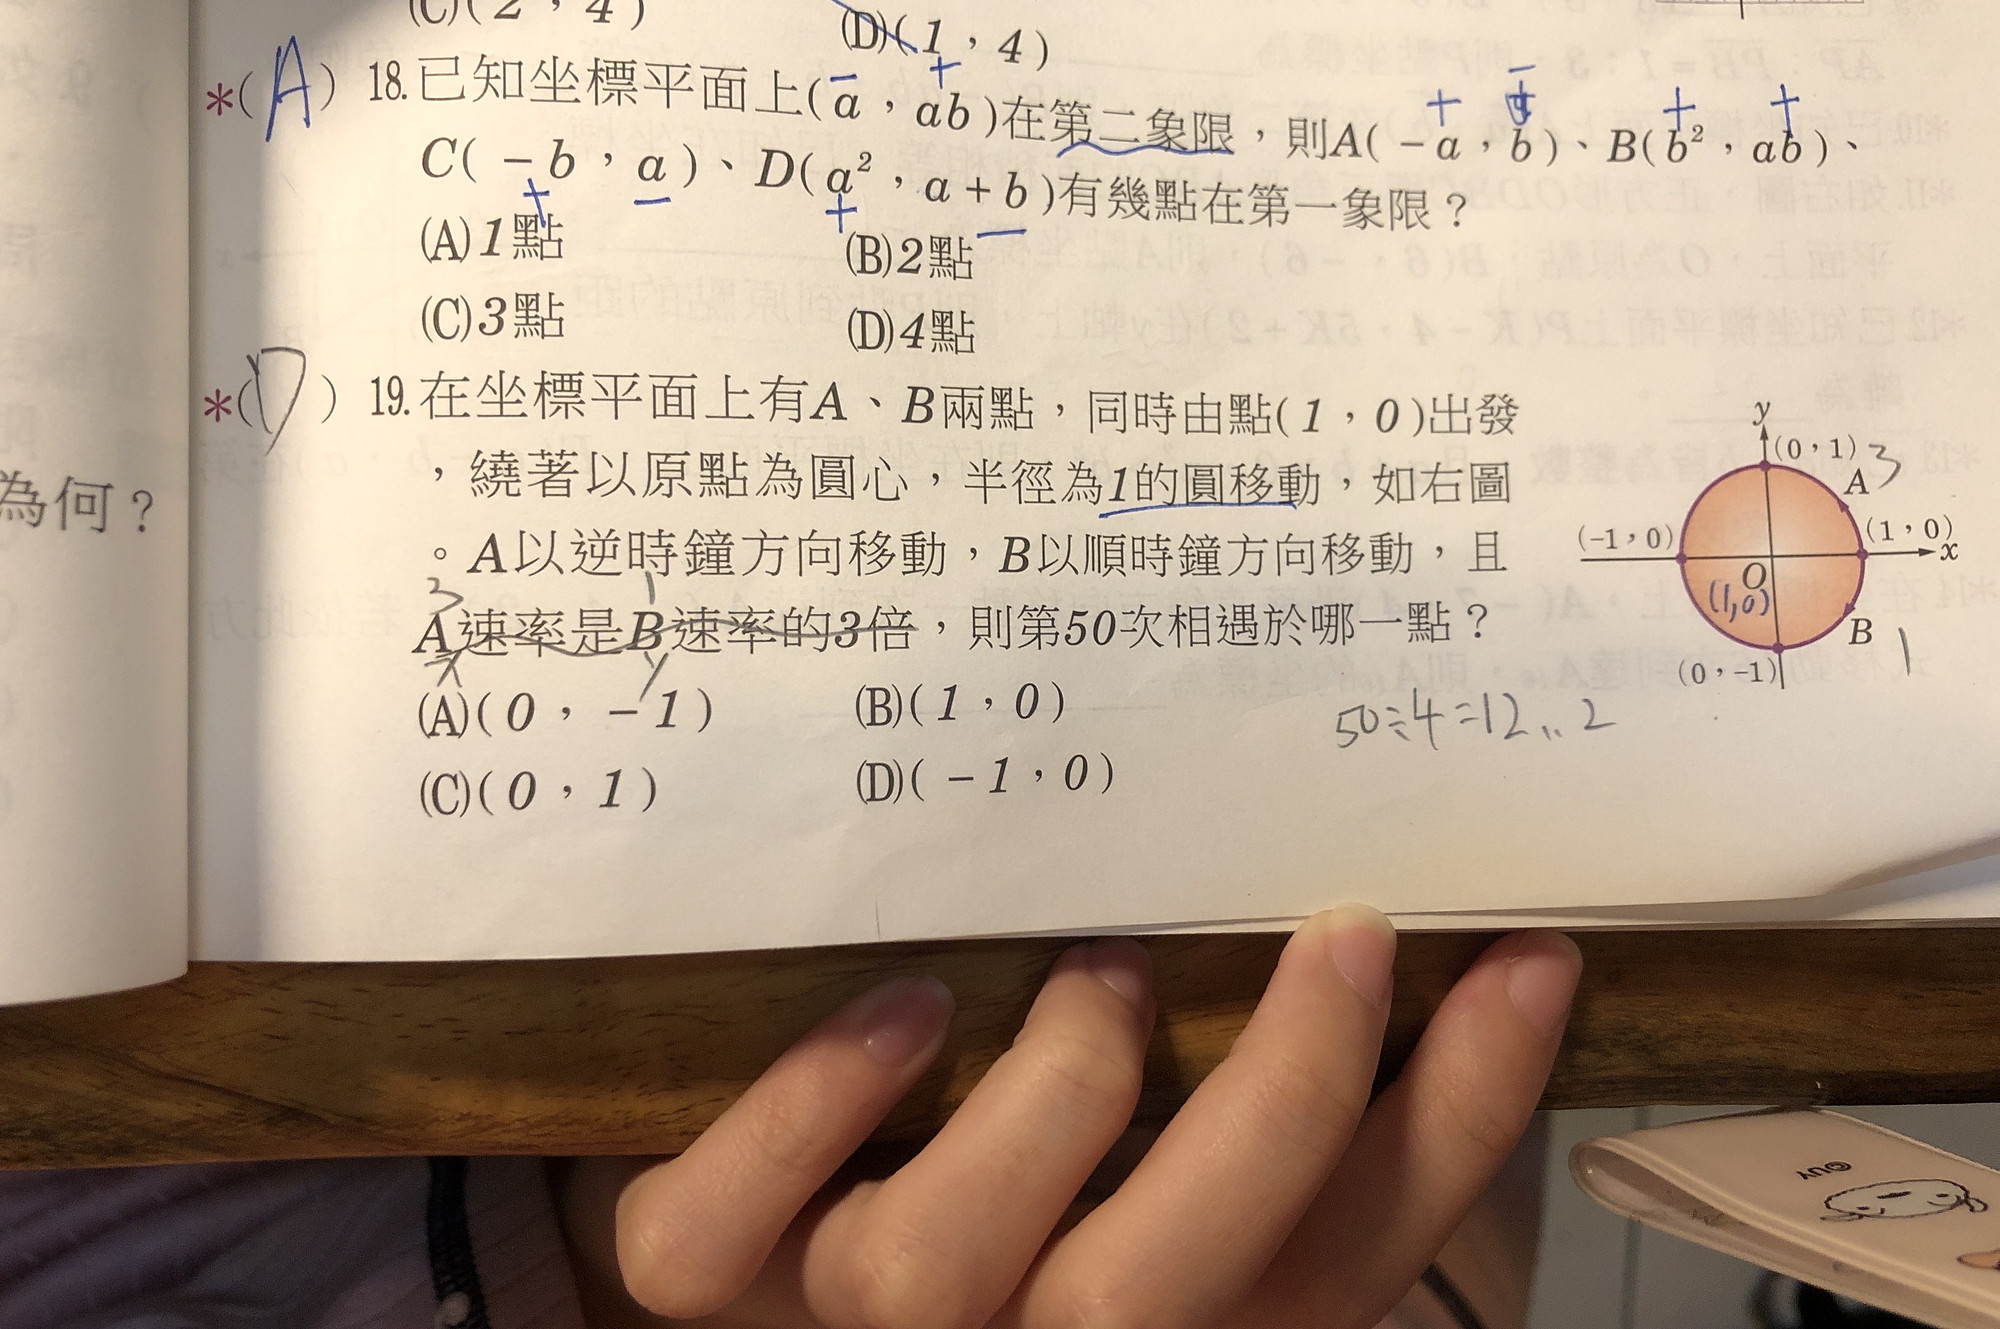 (C)(2，4)
(D)(1，4)
*(A) 18.已知坐標平面上(a，ab)在第二象限，則A(－a，b)、B(b²，ab)、
－ + + － + +
C(－b，a)、D(a²，a＋b)有幾點在第一象限？
+ － + －
(A)1點 (B)2點
(C)3點 (D)4點
*(D) 19.在坐標平面上有A、B兩點，同時由點(1，0)出發
，繞著以原點為圓心，半徑為1的圓移動，如右圖
。A以逆時鐘方向移動，B以順時鐘方向移動，且
3 1
A速率是B速率的3倍，則第50次相遇於哪一點？
x y
(A)(0，－1) (B)(1，0)
(C)(0，1) (D)(－1，0)
y
(0，1) 3
A
(－1，0) (1，0)
x
O
(1,0)
B 1
(0，－1)
50÷4=12...2
為何？
©UY